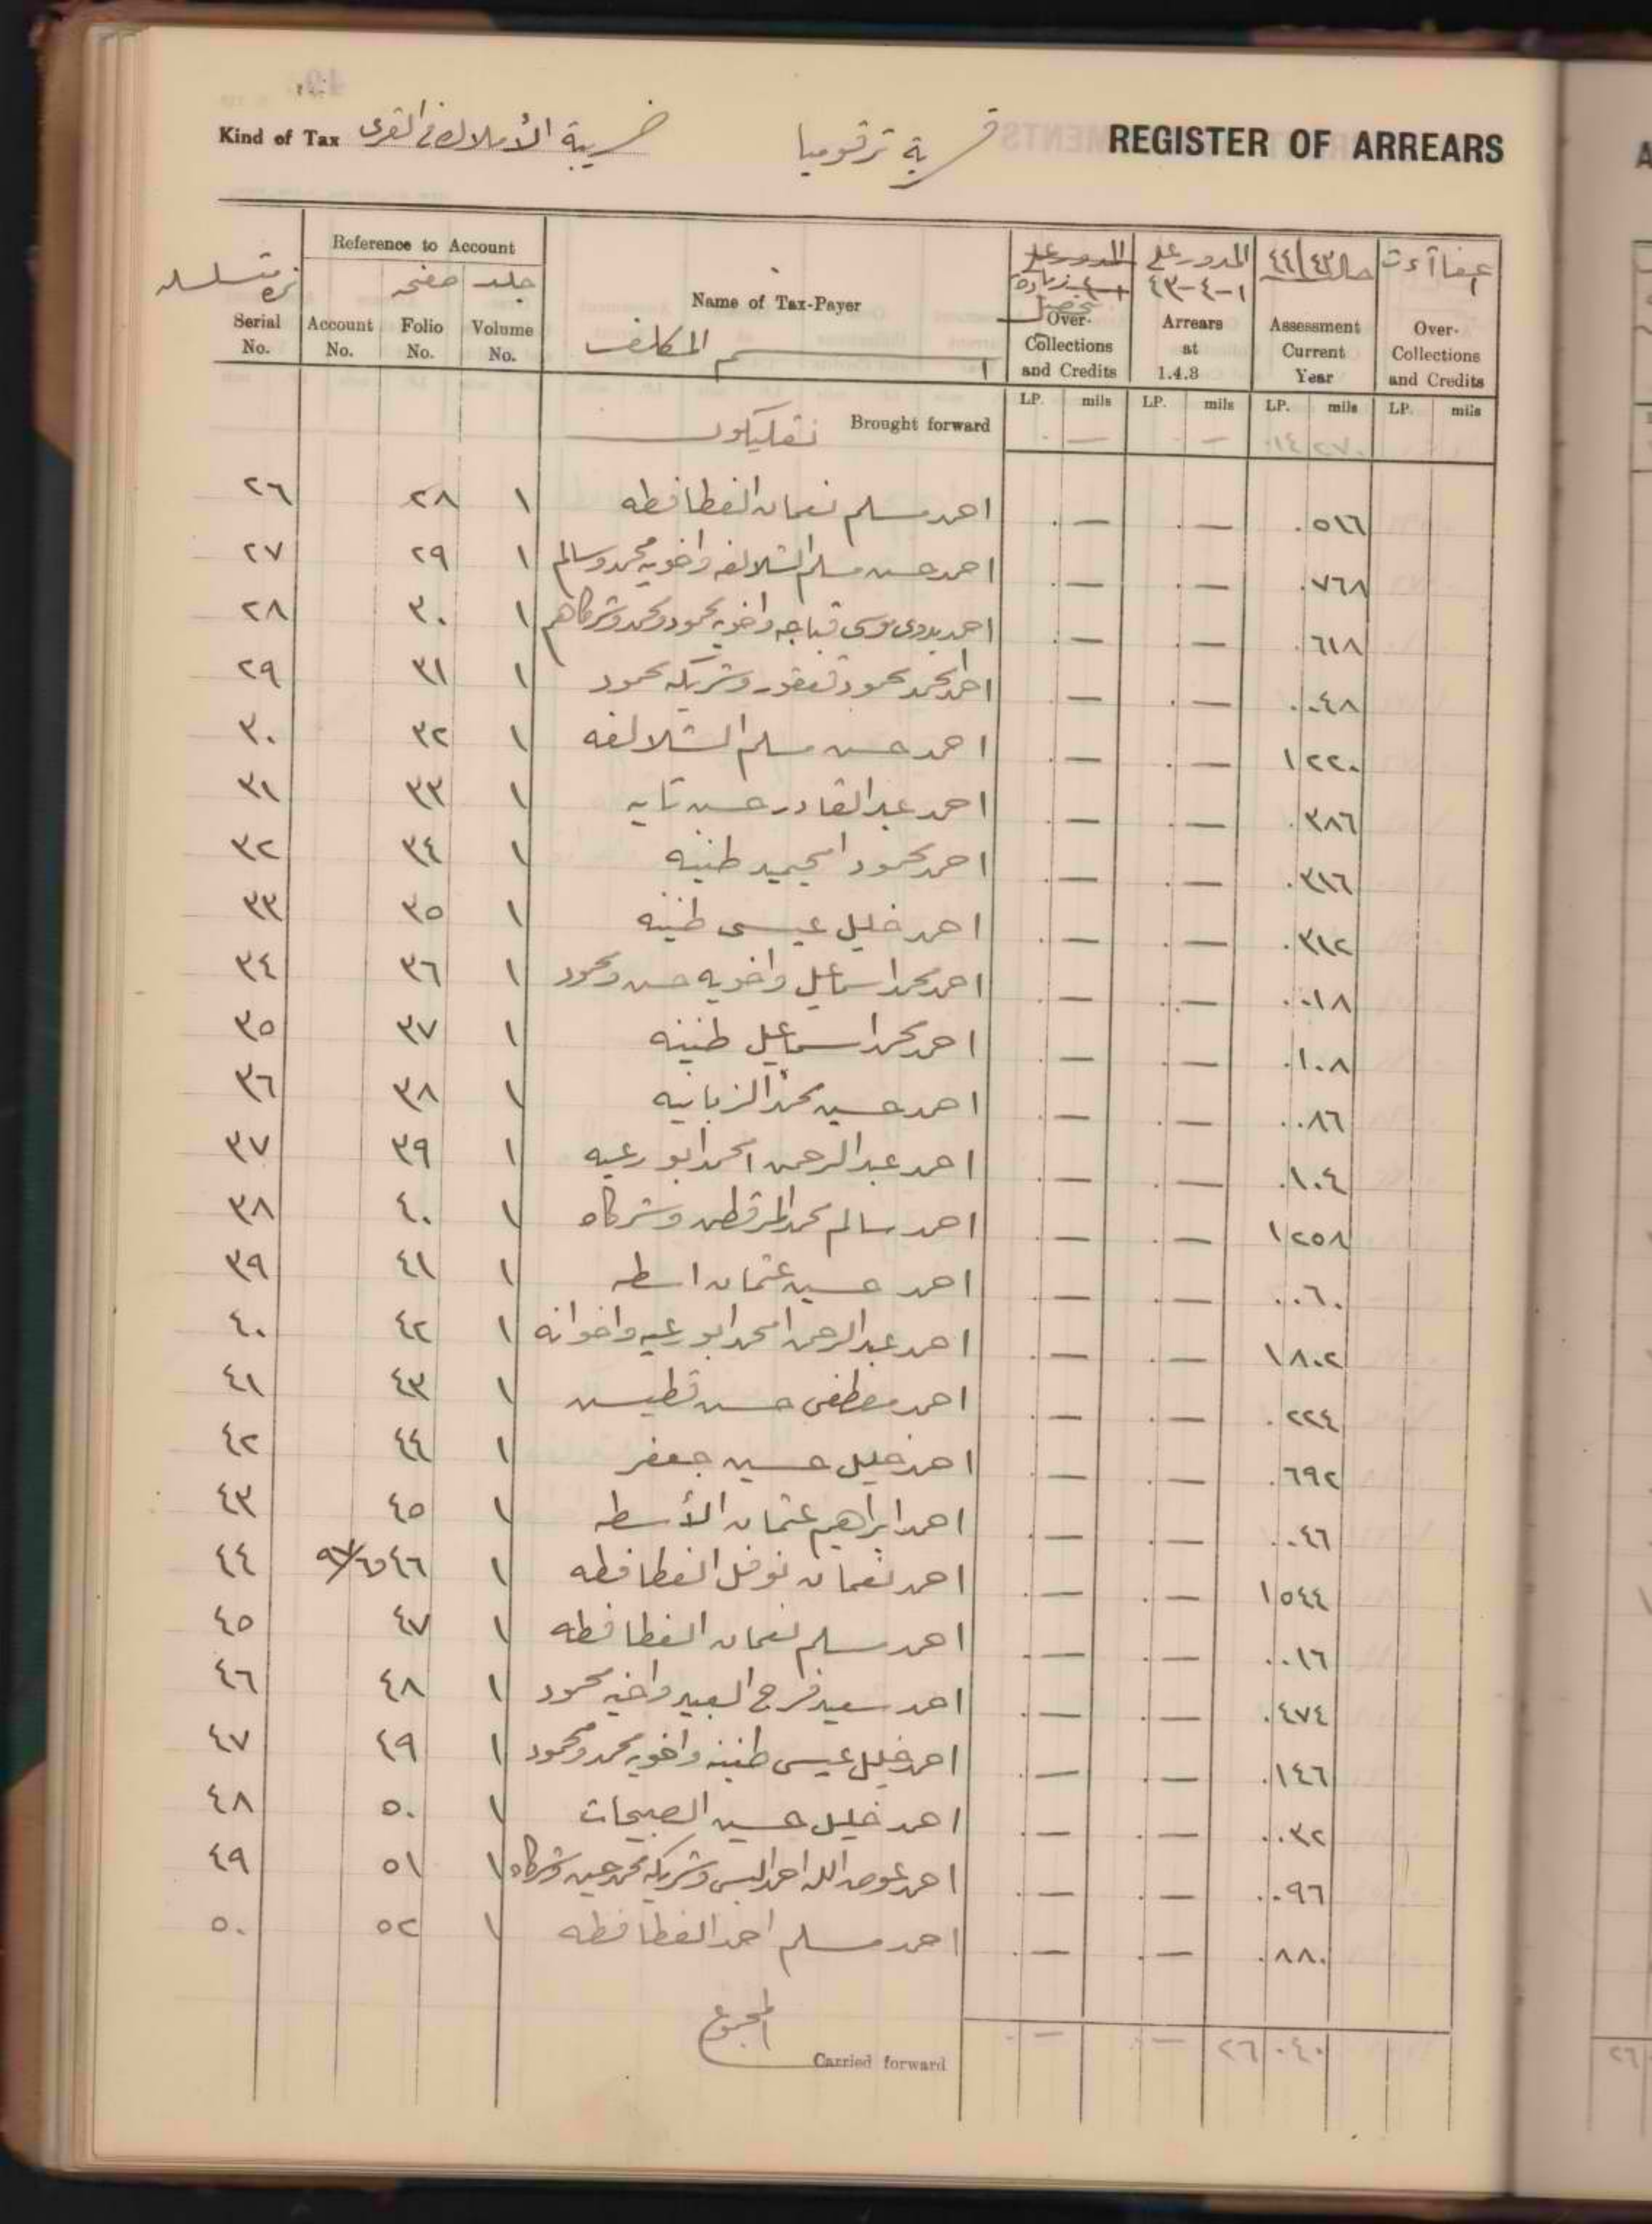 Kind of Tax ضريبة الأملاك في القرى قرية ترقوميا REGISTER OF ARREARS
Reference to Account
نمرة متسلسلة صفحه جلد المدور على المدور على ١-٤-٤٣ حال ٤٤/٤٣
Serial No. Account No. Folio No. Volume No. Name of Tax-Payer اسم المكلف Over-Collections and Credits Arrears at 1.4.3 Assessment Current Year Over-Collections and Credits
LP. mils LP. mils LP. mils LP. mils
Brought forward . — . — ١٤ ٢٧٠
٢٦ ٢٨ ١ احمد مسلم نعمان الفطافطه . — . — . ٥١٦
٢٧ ٢٩ ١ احمد حسن مسلم الشلالفه واخويه محمد وسالم . — . — . ٧٦٨
٢٨ ٣٠ ١ احمد بدوي موسى قباجه واخويه محمود ومحمد وشركاهم . — . — . ٦١٨
٢٩ ٣١ ١ احمد محمد محمود وشريكه محمود . — . — . ٠٤٨
٣٠ ٣٢ ١ احمد حسن مسلم الشلالفه . — . — ١ ٢٢٠
٣١ ٣٣ ١ احمد عبد القادر حسن . — . — . ٣٨٦
٣٢ ٣٤ ١ احمد محمود امحيميد طنينه . — . — . ٣١٦
٣٣ ٣٥ ١ احمد خليل عيسى طنينه . — . — . ٣١٢
٣٤ ٣٦ ١ احمد محمد اسماعيل واخويه حسن ومحمود . — . — . ٠١٨
٣٥ ٣٧ ١ احمد محمد اسماعيل طنينه . — . — . ١٠٨
٣٦ ٣٨ ١ احمد حسين محمد . — . — . ٠٨٦
٣٧ ٣٩ ١ احمد عبد الرحمن امحمد ابو رعيه . — . — . ١٠٤
٣٨ ٤٠ ١ احمد سالم محمد المرقطن وشركاه . — . — ١ ٢٥٨
٣٩ ٤١ ١ احمد حسين عثمان اسطه . — . — . ٠٦٠
٤٠ ٤٢ ١ احمد عبد الرحمن امحمد ابو رعيه واخوانه . — . — ١ ٨٠٢
٤١ ٤٣ ١ احمد مصطفى حسن قطيس . — . — . ٢٢٤
٤٢ ٤٤ ١ احمد خليل حسين جعفر . — . — . ٦٩٢
٤٣ ٤٥ ١ احمد ابراهيم عثمان الأسطه . — . — . ٠٤٦
٤٤ ٤٦ ١ احمد نعمان نوفل الفطافطه . — . — ١ ٥٤٤
٤٥ ٤٧ ١ احمد مسلم نعمان الفطافطه . — . — . ٠١٦
٤٦ ٤٨ ١ احمد سعيد فرج العبيد واخيه محمود . — . — . ٤٧٤
٤٧ ٤٩ ١ احمد خليل عيسى طنينه واخويه محمد ومحمود . — . — . ١٤٦
٤٨ ٥٠ ١ احمد خليل حسين الصبيحات . — . — . ٠٣٢
٤٩ ٥١ ١ احمد عوض الله احمد وشريكه محمد حسين وشركاه . — . — . ٠٩٦
٥٠ ٥٢ ١ احمد مسلم احمد الفطافطه . — . — . ٨٨٠
المجموع
Carried forward . — . — ٢٦ ٠٤٠